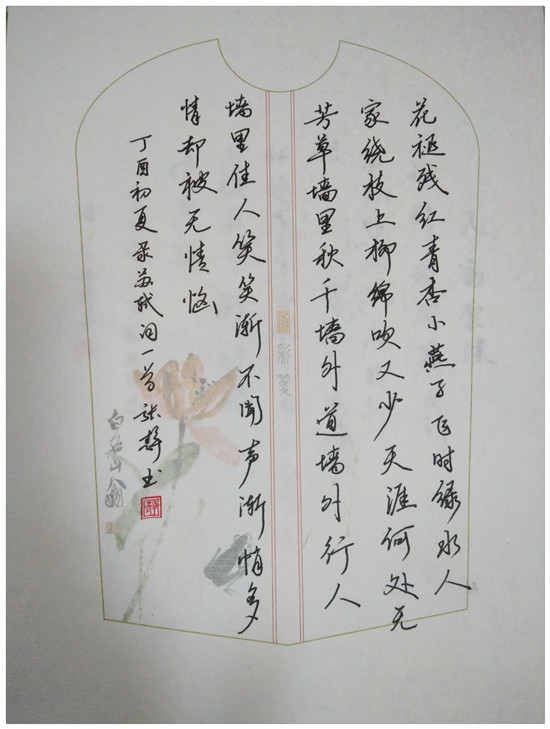 花褪残红青杏小燕子飞时绿水人
家绕枝上柳绵吹又少天涯何处无
芳草墙里秋千墙外道墙外行人
彩笺
墙里佳人笑笑渐不闻声渐悄多
情却被无情恼
丁酉初夏录苏轼词一首张静书
白石山翁